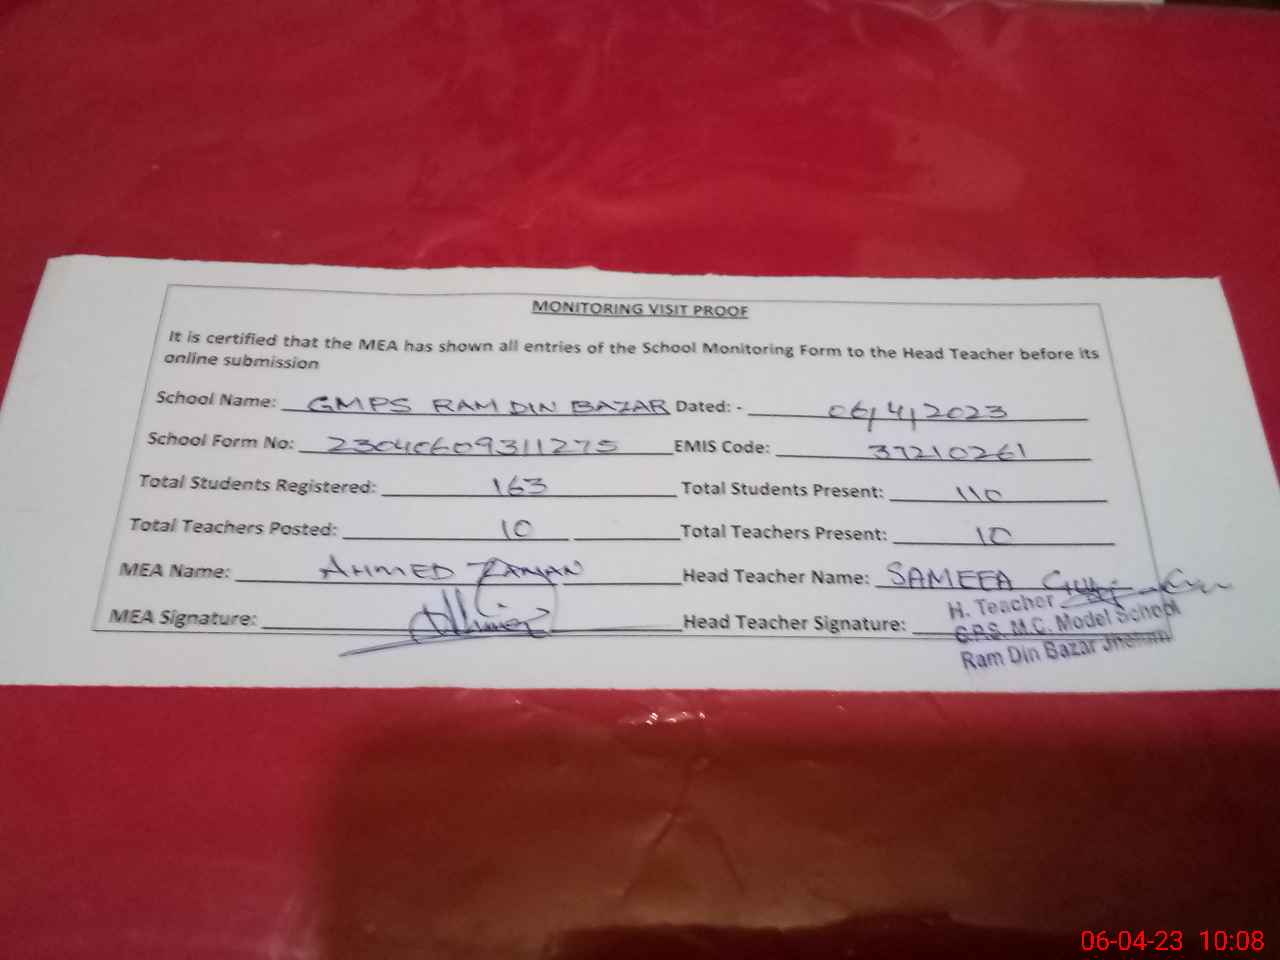 MONITORING VISIT PROOF
It is certified that the MEA has shown all entries of the School Monitoring Form to the Head Teacher before its
online submission
School Name: GMPS RAM DIN BAZAR Dated: - 06/4/2023
School Form No: 23040609311275 EMIS Code: 37210261
Total Students Registered: 163 Total Students Present: 110
Total Teachers Posted: 10 Total Teachers Present: 10
MEA Name: AHMED ZAMAN Head Teacher Name: SAMEEA
MEA Signature: Head Teacher Signature:
H. Teacher
G.P.S. M.C. Model School
Ram Din Bazar Jhelum
06-04-23 10:08